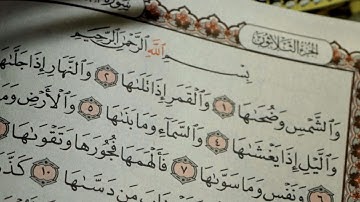 الجزء الثلاثون
بِسْمِ اللَّهِ الرَّحْمَٰنِ الرَّحِيمِ
وَالشَّمْسِ وَضُحَىٰهَا ١ وَالْقَمَرِ إِذَا تَلَىٰهَا ٢ وَالنَّهَارِ إِذَا جَلَّىٰهَا
وَالَّيْلِ إِذَا يَغْشَىٰهَا ٤ وَالسَّمَآءِ وَمَا بَنَىٰهَا ٥ وَالْأَرْضِ وَمَا
٦ وَنَفْسٍ وَمَا سَوَّىٰهَا ٧ فَأَلْهَمَهَا فُجُورَهَا وَتَقْوَىٰهَا
مَن دَسَّىٰهَا ١٠